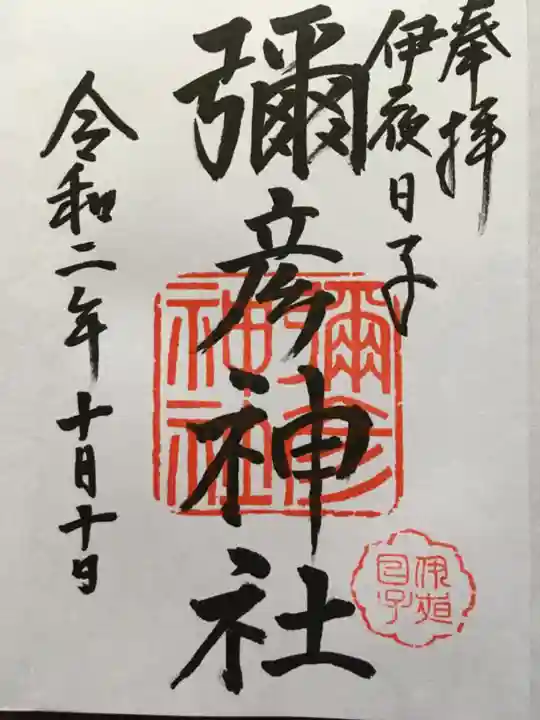 奉拝
伊夜日子
彌彦神社
令和二年十月十日
彌彦
神社
伊夜
日子